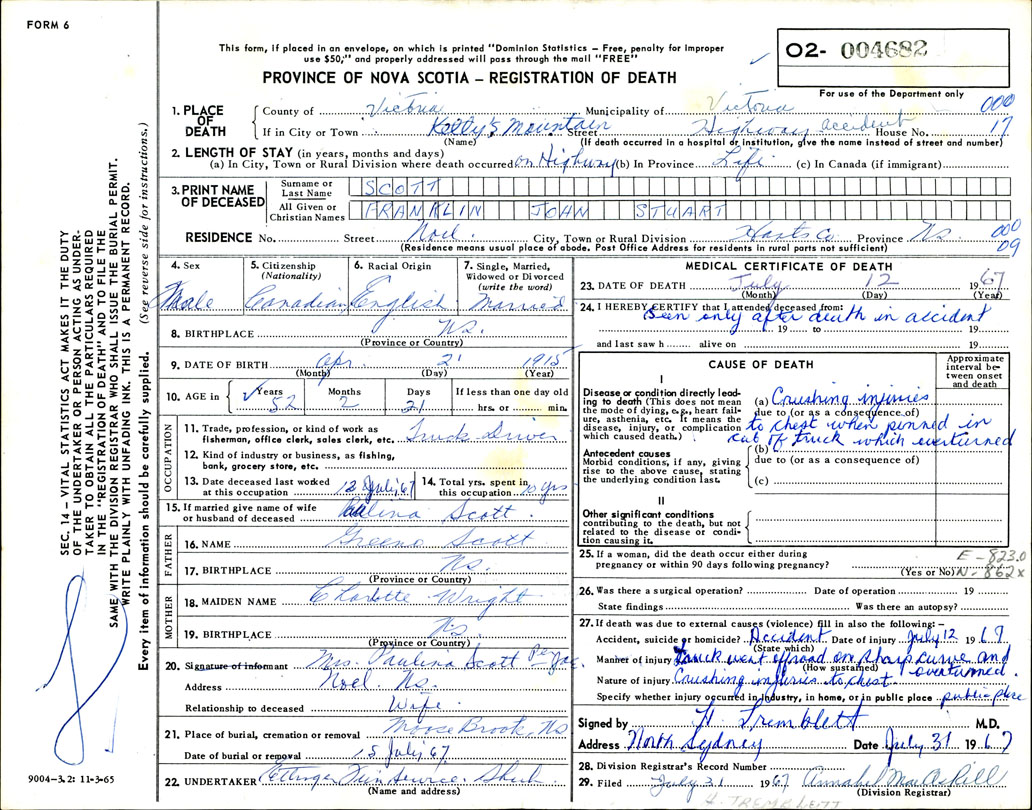 FORM 6
This form, if placed in an envelope, on which is printed "Dominion Statistics – Free, penalty for improper
use $50," and properly addressed will pass through the mail "FREE"
PROVINCE OF NOVA SCOTIA – REGISTRATION OF DEATH
O2- 004682
For use of the Department only
1. PLACE OF DEATH County of Victoria Municipality of Victoria 000
If in City or Town Kelly's Mountain Street Highway accident House No. 17
(Name) (If death occurred in a hospital or institution, give the name instead of street and number)
2. LENGTH OF STAY (in years, months and days)
(a) In City, Town or Rural Division where death occurred on Highway (b) In Province Life (c) In Canada (if immigrant)
3. PRINT NAME OF DECEASED
Surname or Last Name SCOTT
All Given or Christian Names FRANKLIN JOHN STUART
RESIDENCE No. Street Noel City, Town or Rural Division Hants Co Province Ns. 000 09
(Residence means usual place of abode. Post Office Address for residents in rural parts not sufficient)
4. Sex Male
5. Citizenship (Nationality) Canadian
6. Racial Origin English
7. Single, Married, Widowed or Divorced (write the word) Married
8. BIRTHPLACE Ns.
(Province or Country)
9. DATE OF BIRTH Apr. 21 1915
(Month) (Day) (Year)
10. AGE in Years 52 Months 2 Days 21 If less than one day old hrs. or min.
OCCUPATION
11. Trade, profession, or kind of work as fisherman, office clerk, sales clerk, etc. Truck Driver
12. Kind of industry or business, as fishing, bank, grocery store, etc.
13. Date deceased last worked at this occupation 12 July, 67
14. Total yrs. spent in this occupation 10 yrs
15. If married give name of wife or husband of deceased Paulina Scott
FATHER
16. NAME Greeno Scott
17. BIRTHPLACE Ns.
(Province or Country)
MOTHER
18. MAIDEN NAME Charlotte Wright
19. BIRTHPLACE Ns.
(Province or Country)
20. Signature of informant Mrs. Paulina Scott Per
Address Noel. Ns.
Relationship to deceased Wife
21. Place of burial, cremation or removal Moose Brook, Ns
Date of burial or removal 15 July, 67
22. UNDERTAKER Ettinger
(Name and address)
MEDICAL CERTIFICATE OF DEATH
23. DATE OF DEATH July 12 1967
(Month) (Day) (Year)
24. I HEREBY CERTIFY that I attended deceased from:
Seen only after death in accident
19 to 19
and last saw h alive on 19
CAUSE OF DEATH
Approximate interval between onset and death
I
Disease or condition directly leading to death (This does not mean the mode of dying, e.g., heart failure, asthenia, etc. It means the disease, injury, or complication which caused death.)
(a) Crushing injuries
due to (or as a consequence of)
to chest when pinned in
cab of truck which overturned
Antecedent causes
Morbid conditions, if any, giving rise to the above cause, stating the underlying condition last.
(b)
due to (or as a consequence of)
(c)
II
Other significant conditions
contributing to the death, but not related to the disease or condition causing it.
25. If a woman, did the death occur either during pregnancy or within 90 days following pregnancy?
(Yes or No)
E - 823.0
N - 862x
26. Was there a surgical operation? Date of operation 19
State findings Was there an autopsy?
27. If death was due to external causes (violence) fill in also the following: –
Accident, suicide or homicide? Accident Date of injury July 12 1967
(State which)
Manner of injury Truck went off road on sharp curve and overturned.
(How sustained)
Nature of injury Crushing injuries to chest
Specify whether injury occurred in industry, in home, or in public place public place
Signed by H. Tremblett M.D.
Address North Sydney Date July 31 1967
28. Division Registrar's Record Number
29. Filed July 31 1967 Annabel MacAskill
(Division Registrar)
H. TREMBLETT
SEC. 14 – VITAL STATISTICS ACT MAKES IT THE DUTY
OF THE UNDERTAKER OR PERSON ACTING AS UNDER-
TAKER TO OBTAIN ALL THE PARTICULARS REQUIRED
IN THE "REGISTRATION OF DEATH" AND TO FILE THE
SAME WITH THE DIVISION REGISTRAR WHO SHALL ISSUE THE BURIAL PERMIT.
WRITE PLAINLY WITH UNFADING INK. THIS IS A PERMANENT RECORD.
Every item of information should be carefully supplied. (See reverse side for instructions.)
9004-3.2: 11-3-65